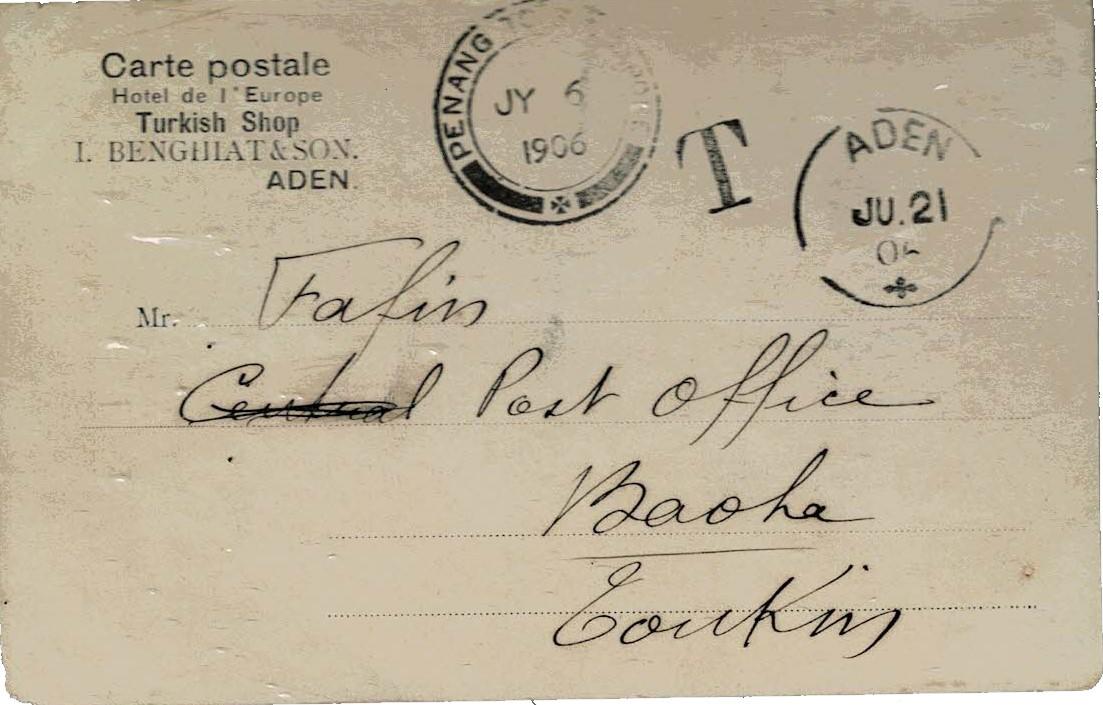 Carte postale
Hotel de l'Europe
Turkish Shop
I. BENGHIAT & SON.
ADEN.
PENANG TO
JY 6
1906
T
ADEN
JU. 21
Mr. Fafin
Central Post Office
Baoha
Tonkin